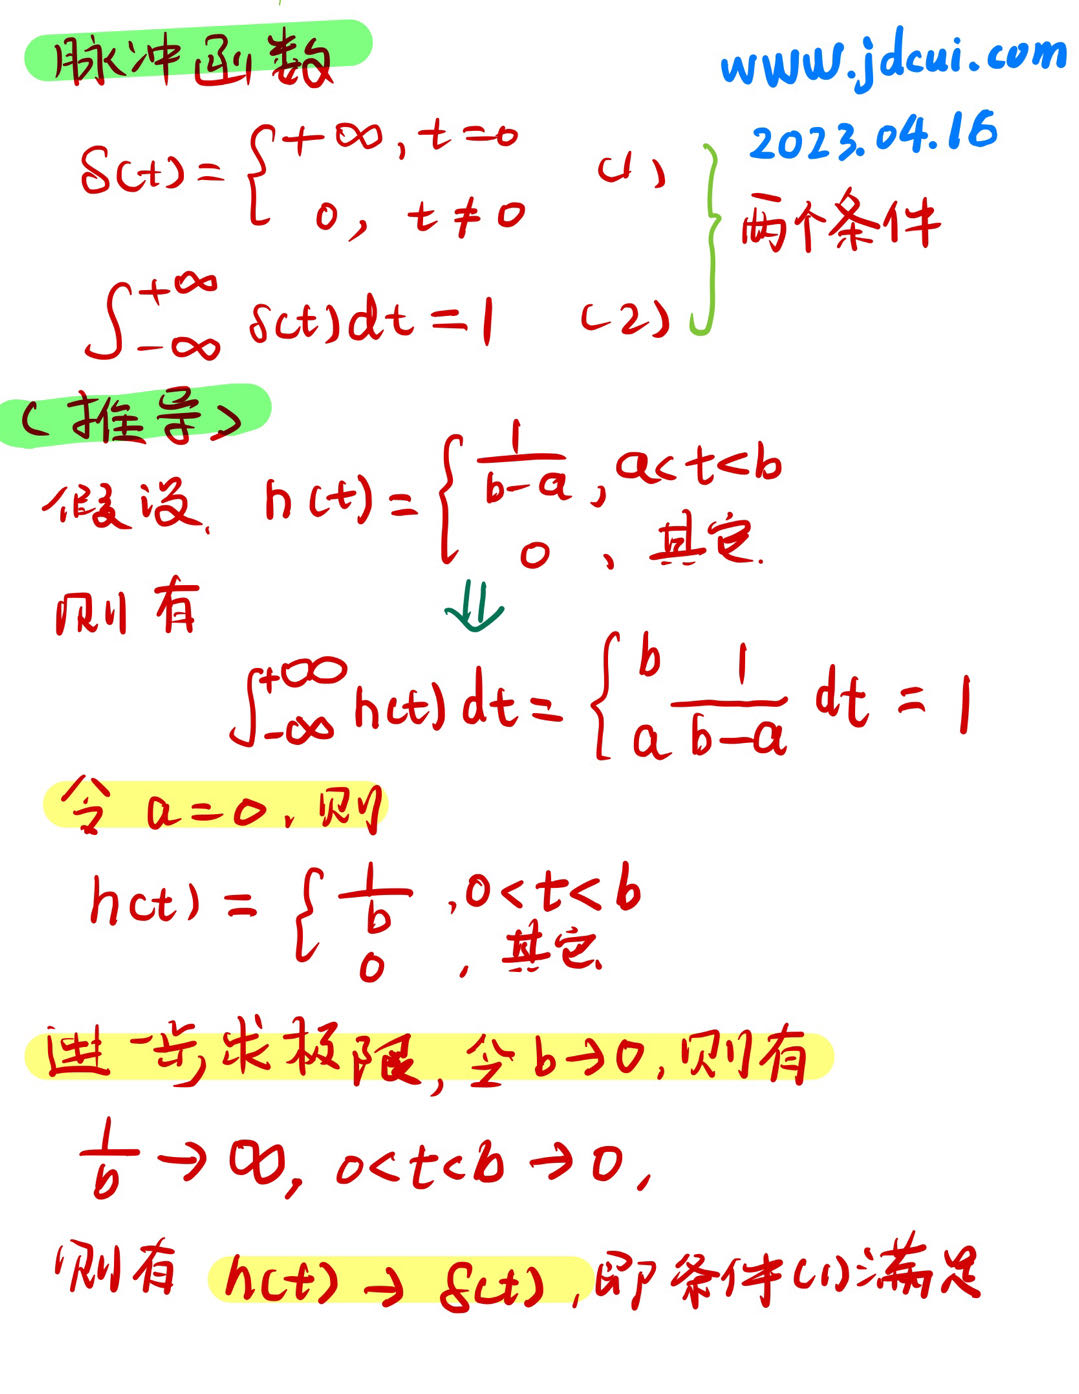 脉冲函数
www.jdcui.com
2023.04.16
δ(t) = { +∞, t=0
0, t≠0 (1)
两个条件
∫_{-∞}^{+∞} δ(t)dt = 1 (2)
(推导)
假设, h(t) = { 1/(b-a), a<t<b
0, 其它.
则有
⇓
∫_{-∞}^{+∞} h(t) dt = { b a 1/(b-a) dt = 1
令 a=0, 则
h(t) = { 1/b, 0<t<b
0, 其它.
进一步求极限, 令 b→0, 则有
1/b → ∞, 0<t<b → 0,
则有 h(t) → δ(t), 即条件(1)满足